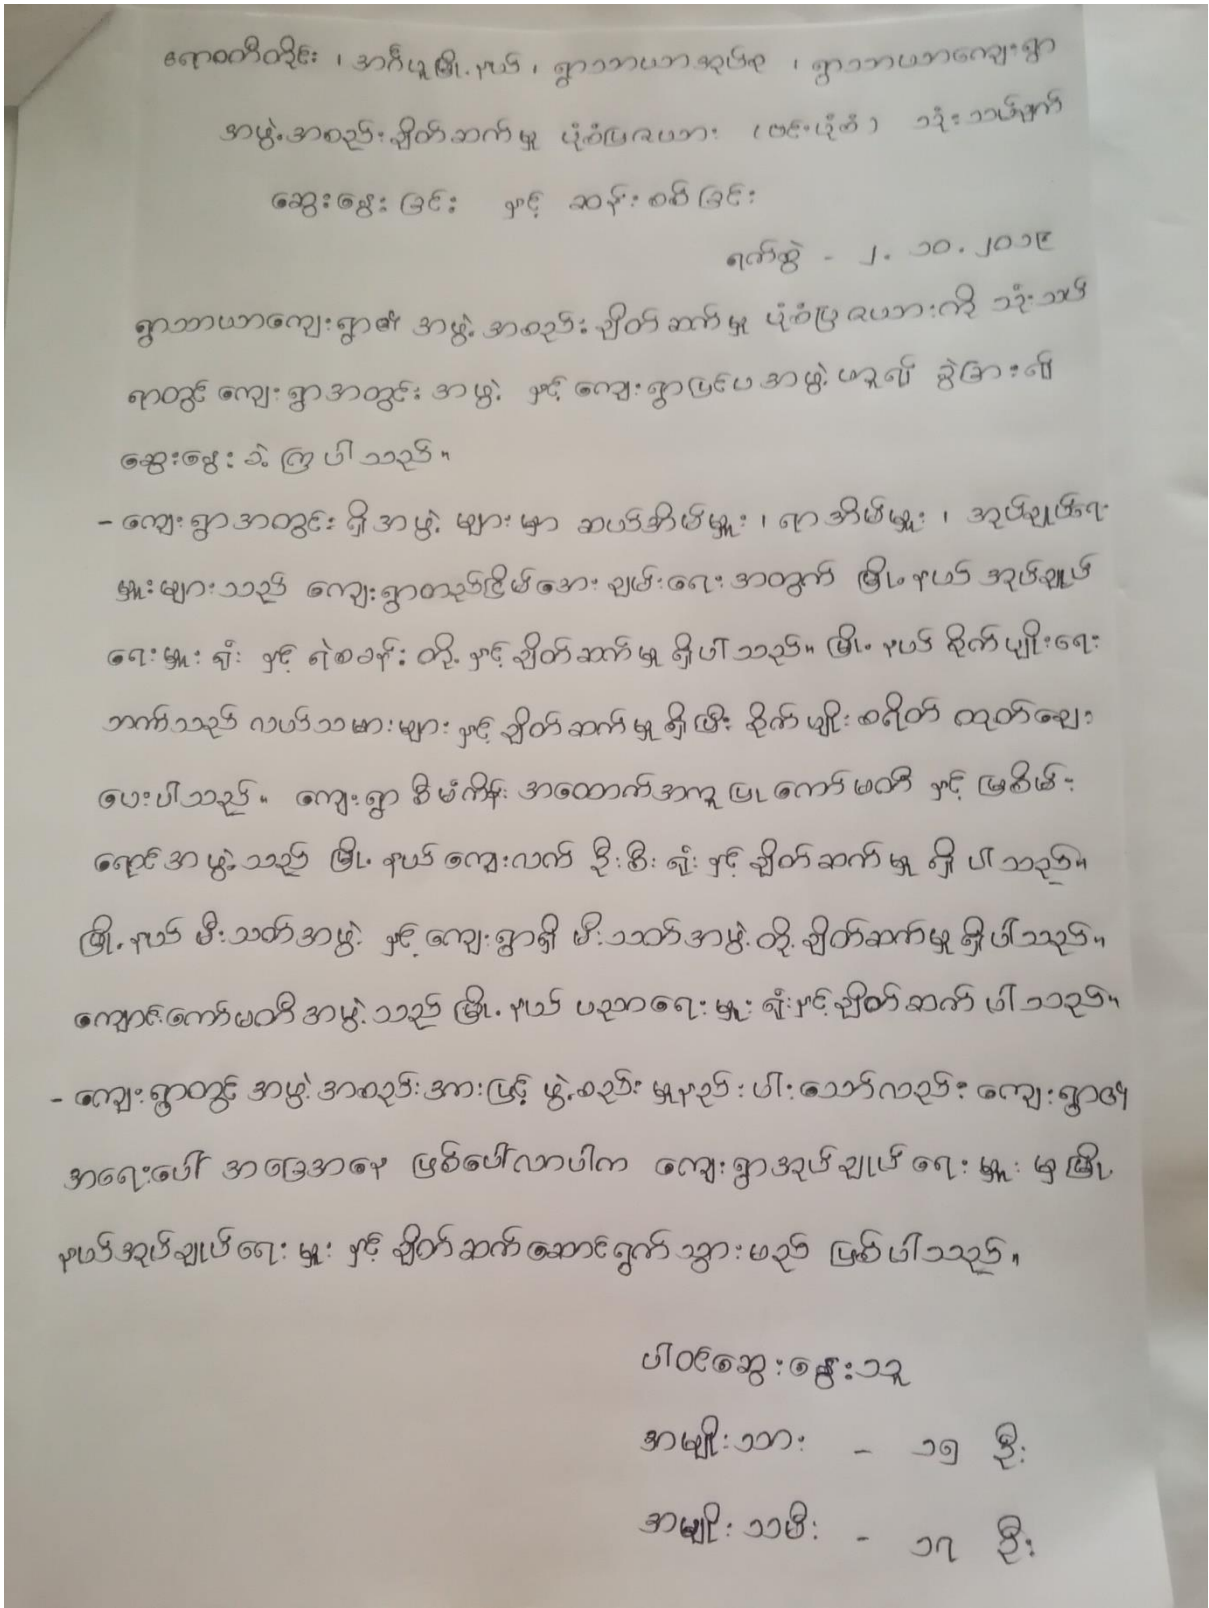 ဧရာဝတီတိုင်း ၊ အင်္ဂပူမြို့နယ် ၊ ရွာသာယာအုပ်စု ၊ ရွာသာယာကျေးရွာ
အဖွဲ့အစည်းချိတ်ဆက်မှု ပုံစံပြဇယား (ဗင်းပုံစံ) သုံးသပ်ချက်
ဆွေးနွေးခြင်း နှင့် ဆန်းစစ်ခြင်း
ရက်စွဲ - ၂.၁၀.၂၀၁၉
ရွာသာယာကျေးရွာ၏ အဖွဲ့အစည်းချိတ်ဆက်မှု ပုံစံပြဇယားကို သုံးသပ်
ရာတွင် ကျေးရွာအတွင်းအဖွဲ့ နှင့် ကျေးရွာပြင်ပအဖွဲ့ဟူ၍ ခွဲခြား၍
ဆွေးနွေးခဲ့ကြပါသည်။
- ကျေးရွာအတွင်းရှိအဖွဲ့များမှာ ဆယ်အိမ်မှူး ၊ ရာအိမ်မှူး ၊ အုပ်ချုပ်ရေး
မှူးများသည် ကျေးရွာတည်ငြိမ်အေးချမ်းရေးအတွက် မြို့နယ်အုပ်ချုပ်
ရေးမှူးရုံး နှင့် ရဲစခန်းတို့နှင့်ချိတ်ဆက်မှုရှိပါသည်။ မြို့နယ်စိုက်ပျိုးရေး
ဘဏ်သည် လယ်သမားများနှင့်ချိတ်ဆက်မှုရှိပြီး စိုက်ပျိုးစရိတ် ထုတ်ချေး
ပေးပါသည်။ ကျေးရွာစီမံကိန်းအထောက်အကူပြုကော်မတီ နှင့် မြစိမ်း
ရောင်အဖွဲ့သည် မြို့နယ်ကျေးလက်ဦးစီးရုံးနှင့်ချိတ်ဆက်မှုရှိပါသည်။
မြို့နယ်မီးသတ်အဖွဲ့ နှင့်ကျေးရွာရှိ မီးသတ်အဖွဲ့တို့ချိတ်ဆက်မှုရှိပါသည်။
ကျောင်းကော်မတီအဖွဲ့သည် မြို့နယ်ပညာရေးမှူးရုံးနှင့်ချိတ်ဆက်ပါသည်။
- ကျေးရွာတွင် အဖွဲ့အစည်းအားဖြင့် ဖွဲ့စည်းမှုနည်းပါးသော်လည်း ကျေးရွာ၏
အရေးပေါ် အခြေအနေ ဖြစ်ပေါ်လာပါက ကျေးရွာအုပ်ချုပ်ရေးမှူးမှ မြို့
နယ်အုပ်ချုပ်ရေးမှူး နှင့် ချိတ်ဆက်ဆောင်ရွက်သွားမည် ဖြစ်ပါသည်။
ပါဝင်ဆွေးနွေးသူ
အမျိုးသား - ၁၅ ဦး
အမျိုးသမီး - ၁၇ ဦး